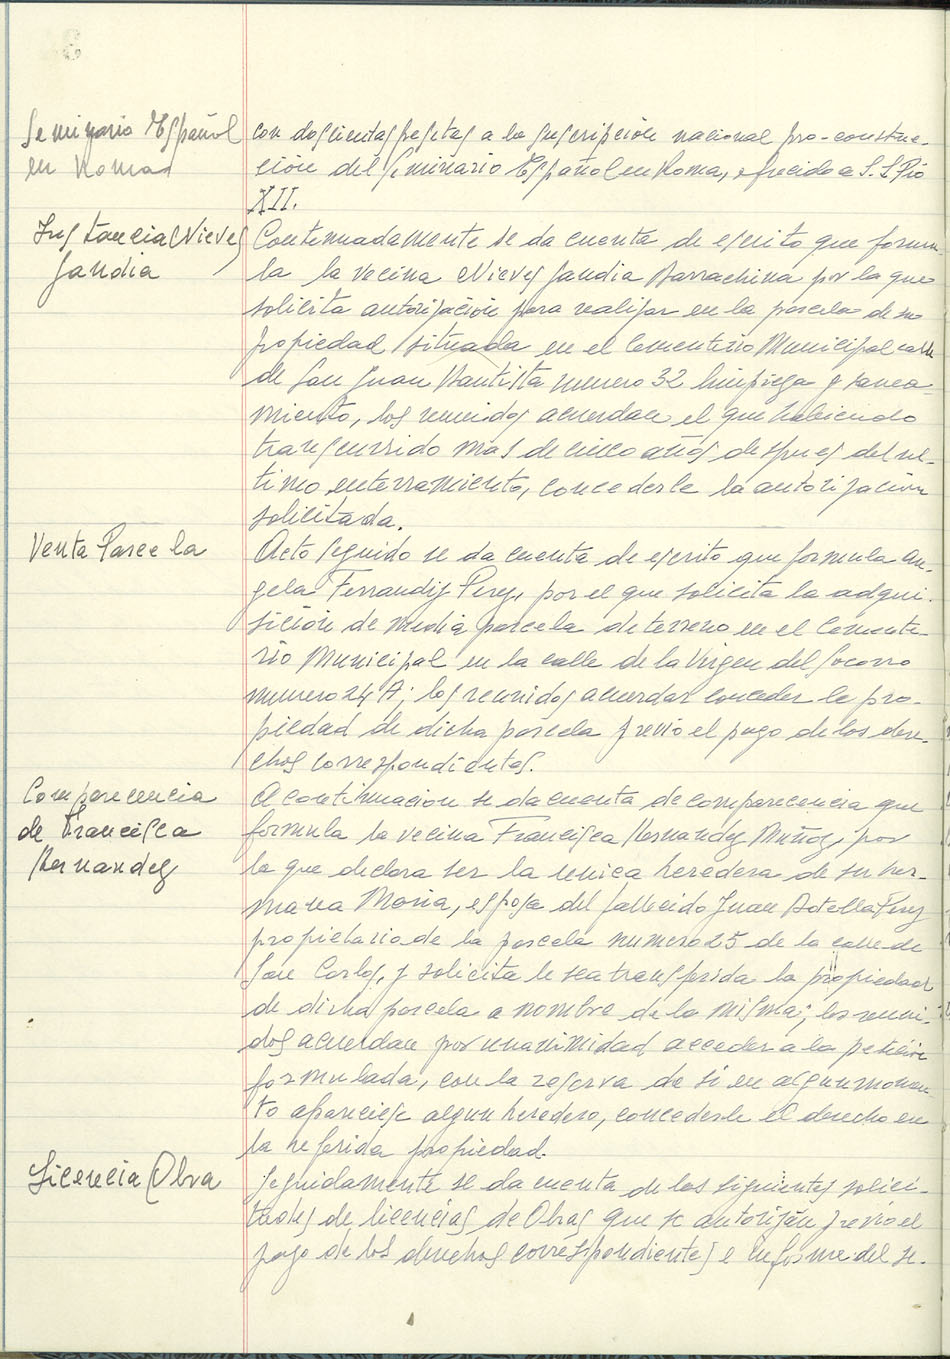 Seminario Español
en Roma
con doscientas pesetas a la suscripción nacional pro-construc-
ción del Seminario Español en Roma, ofrecido a S.S. Pio
XII.
Instancia Nieves
Gandia
Continuadamente se da cuenta de escrito que formu-
la la vecina Nieves Gandia Barrachina por la que
solicita autorización para realizar en la parcela de su
propiedad situada en el Cementerio Municipal calle
de San Juan Bautista numero 32 limpieza y sanea-
miento, los reunidos acuerdan el que habiendo
transcurrido mas de cinco años despues del ul-
timo enterramiento, concederle la autorización
solicitada.
Venta Parcela
Acto seguido se da cuenta de escrito que formula An-
gela Ferrandiz Perez, por el que solicita la adqui-
sición de media parcela de terreno en el Cemente-
rio Municipal en la calle de la Virgen del Socorro
numero 24 A; los reunidos acuerdan conceder la pro-
piedad de dicha parcela previo el pago de los dere-
chos correspondientes.
Comparecencia
de Francisca
Hernandez
A continuacion se da cuenta de comparecencia que
formula la vecina Francisca Hernandez Muñoz, por
la que declara ser la unica heredera de su her-
mana Maria, esposa del fallecido Juan Botella Perez
propietario de la parcela numero 25 de la calle de
San Carlos, y solicita le sea transferida la propiedad
de dicha parcela a nombre de la misma; los reuni-
dos acuerdan por unanimidad acceder a la petición
formulada, con la reserva de si en algun momen-
to apareciese algun heredero, concederle el derecho en
la referida propiedad.
Licencia Obra
Seguidamente se da cuenta de las siguientes solici-
tudes de licencias de Obras que se autorizan previo el
pago de los derechos correspondientes e informe del se-